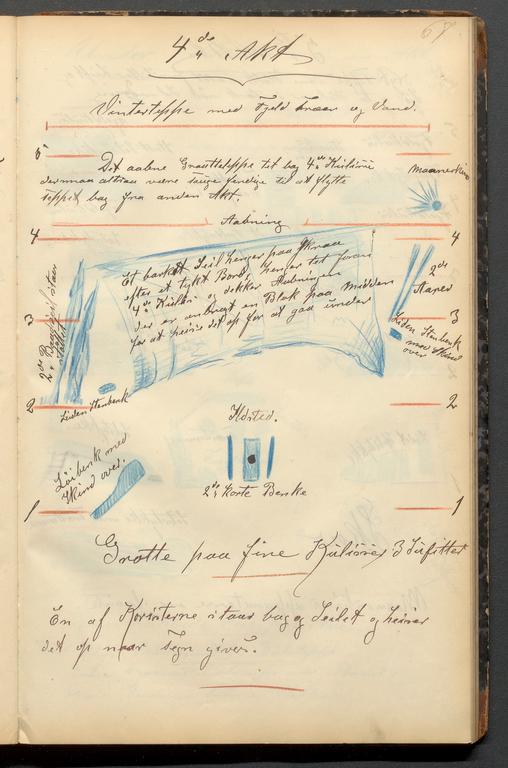 67
4de Akt
Vinterteppe med Fjeld Træer og Vand.
5
Det aabne Grotteteppe tet bag 4de Kulisse
dermaa altsaa være færdige til at flytte
teppet bag fra anden Akt.
Maaneskin
Aabning
4
4
Et barket Seil henger paa Skraa
efter et tykt Bord, henger tet foran
4de Kuliss. og dekker Aabningen
der er anbragt en Blok paa Midden
for at heise det op for at gaa under
2de Baadseil staar
2de
Aarer
3
3
Liden Stenbenk
med Skind
over
2
2
Liden Stenbenk
Ildsted.
Löibenk med
Skind over.
2de korte Benke
1
1
Grotte paa fire Kulisser 3 Sufitter
En af Koristerne staar bag og Seilet og heiser
det op naar Tegn gives.